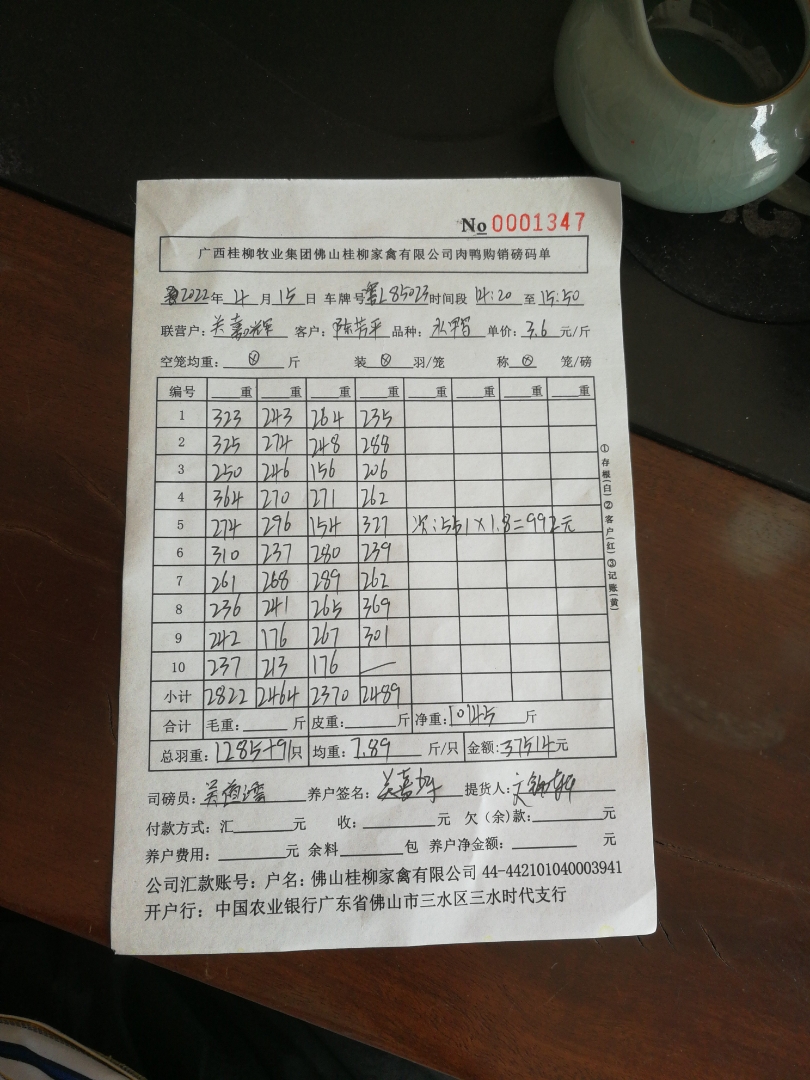 No 0001347
广西桂柳牧业集团佛山桂柳家禽有限公司肉鸭购销磅码单
2022年 4 月 15 日 车牌号 粤L85023 时间段 14:20 至 15:50
联营户: 关嘉辉 客户: 陈芳平 品种: 单价: 3.6 元/斤
空笼均重: ⊗ 斤 装 ⊗ 羽/笼 称 ⊗ 笼/磅
编号 重 重 重 重 重 重 重 重
1 323 243 264 235
2 325 274 248 288
3 250 246 156 206
4 364 270 271 262
5 274 296 154 327 次:551×1.8=992元
6 310 237 280 239
7 261 268 289 262
8 236 241 265 369
9 242 176 267 301
10 237 213 176 —
小计 2822 2464 2370 2489
合计 毛重: 斤 皮重: 斤 净重: 10145 斤
总羽重: 1285+91只 均重: 7.89 斤/只 金额: 37514元
司磅员: 养户签名: 提货人:
付款方式: 汇 元 收: 元 欠(余)款: 元
养户费用: 元 余料 包 养户净金额: 元
公司汇款账号: 户名: 佛山桂柳家禽有限公司 44-442101040003941
开户行: 中国农业银行广东省佛山市三水区三水时代支行
①存根(白)②客户(红)③记账(黄)